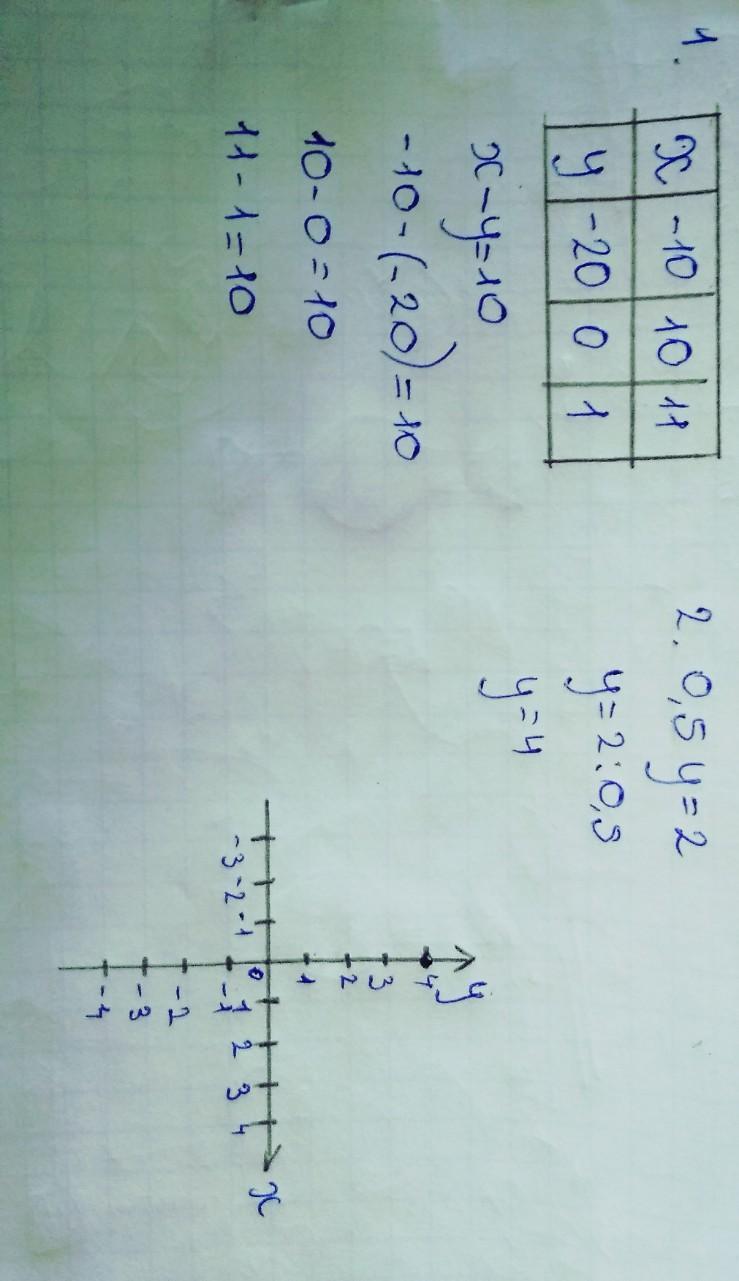 1.
x -10 10 11
y -20 0 1
x-y=10
-10-(-20)=10
10-0=10
11-1=10
2. 0,5y=2
y=2:0,5
y=4
y
4
3
2
1
-3 -2 -1 0 1 2 3 4 x
-1
-2
-3
-4